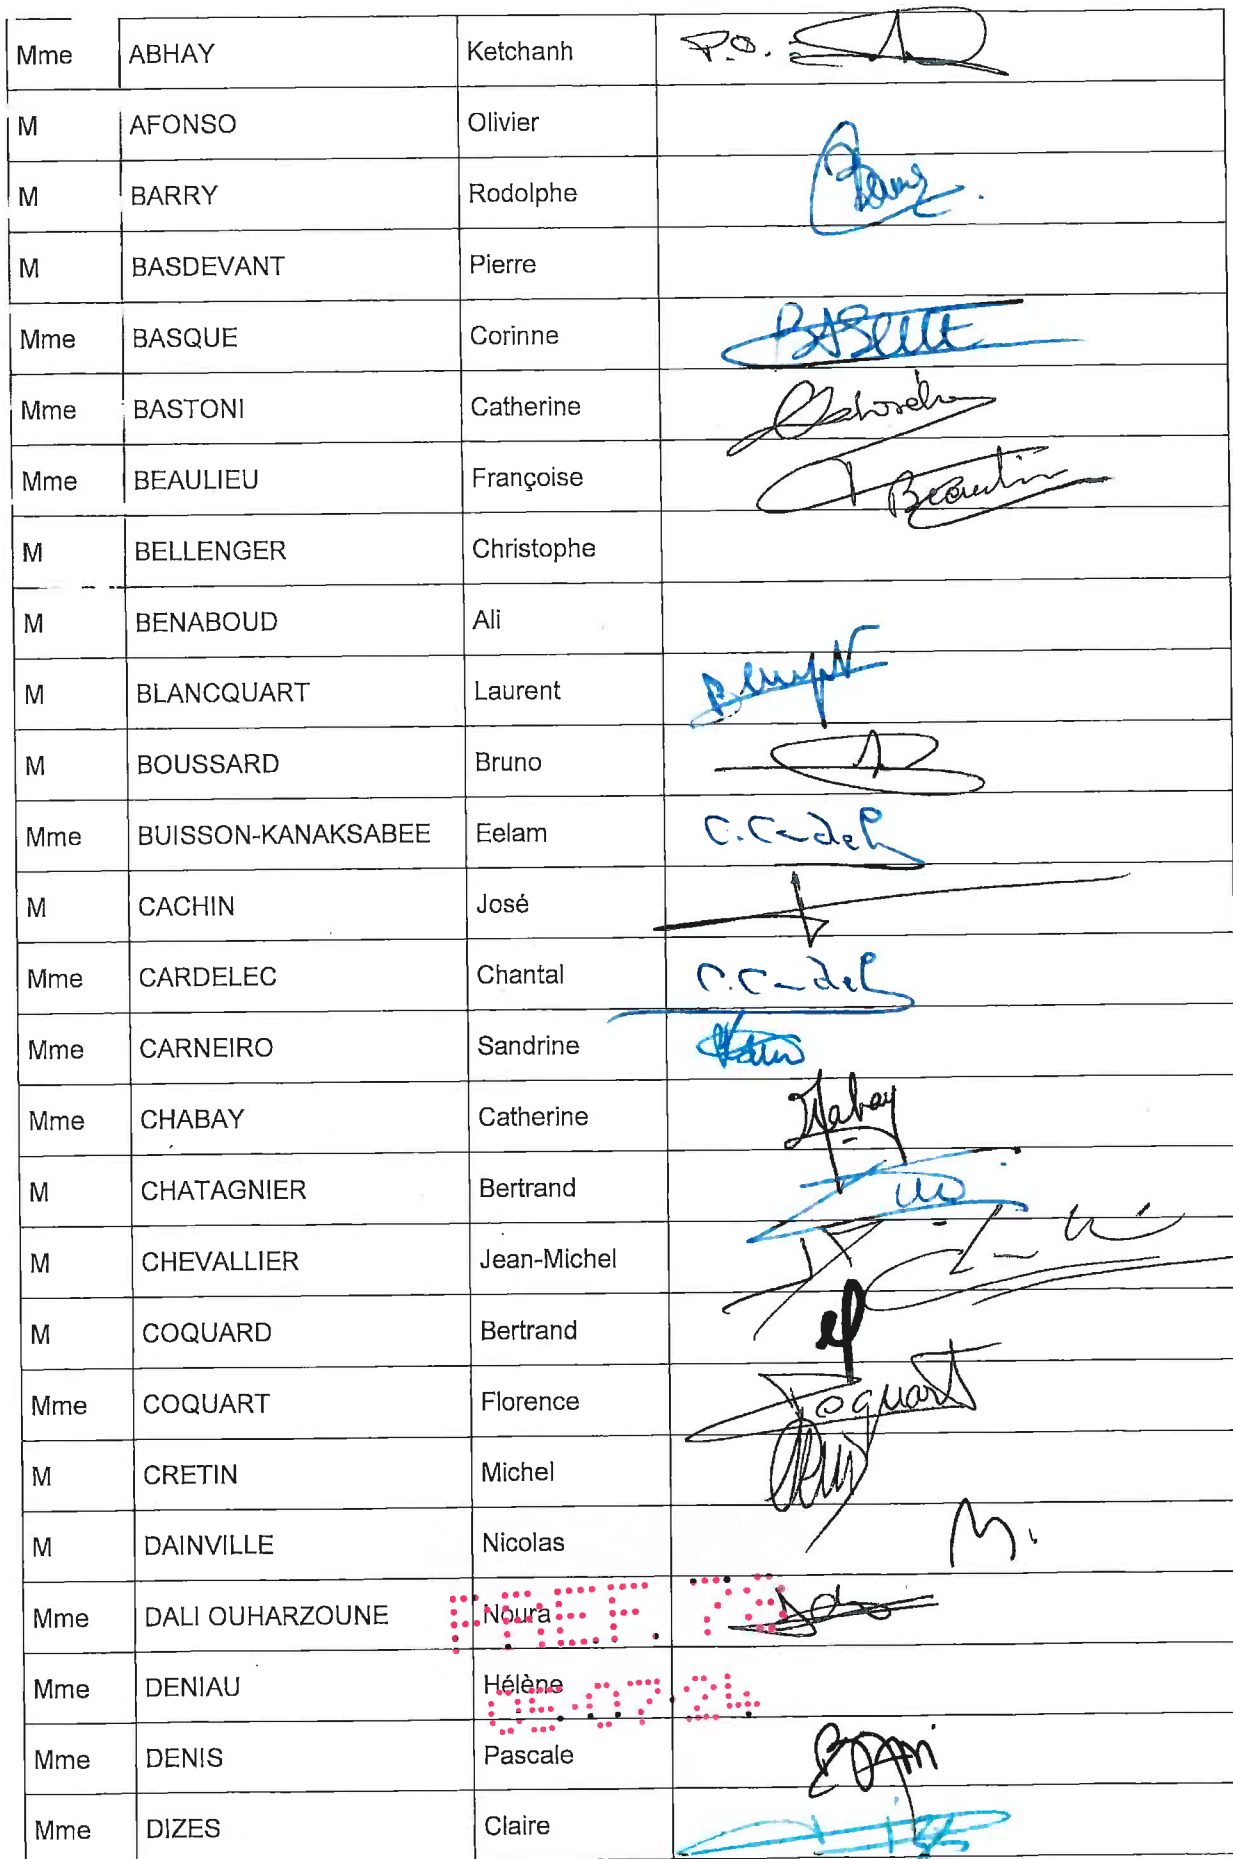 Mme ABHAY Ketchanh P.O.
M AFONSO Olivier
M BARRY Rodolphe
M BASDEVANT Pierre
Mme BASQUE Corinne
Mme BASTONI Catherine
Mme BEAULIEU Françoise
M BELLENGER Christophe
M BENABOUD Ali
M BLANCQUART Laurent
M BOUSSARD Bruno
Mme BUISSON-KANAKSABEE Eelam
M CACHIN José
Mme CARDELEC Chantal
Mme CARNEIRO Sandrine
Mme CHABAY Catherine
M CHATAGNIER Bertrand
M CHEVALLIER Jean-Michel
M COQUARD Bertrand
Mme COQUART Florence Coquart
M CRETIN Michel
M DAINVILLE Nicolas
Mme DALI OUHARZOUNE Noura
PREF. 78
Mme DENIAU Hélène
05.07.24
Mme DENIS Pascale
Mme DIZES Claire